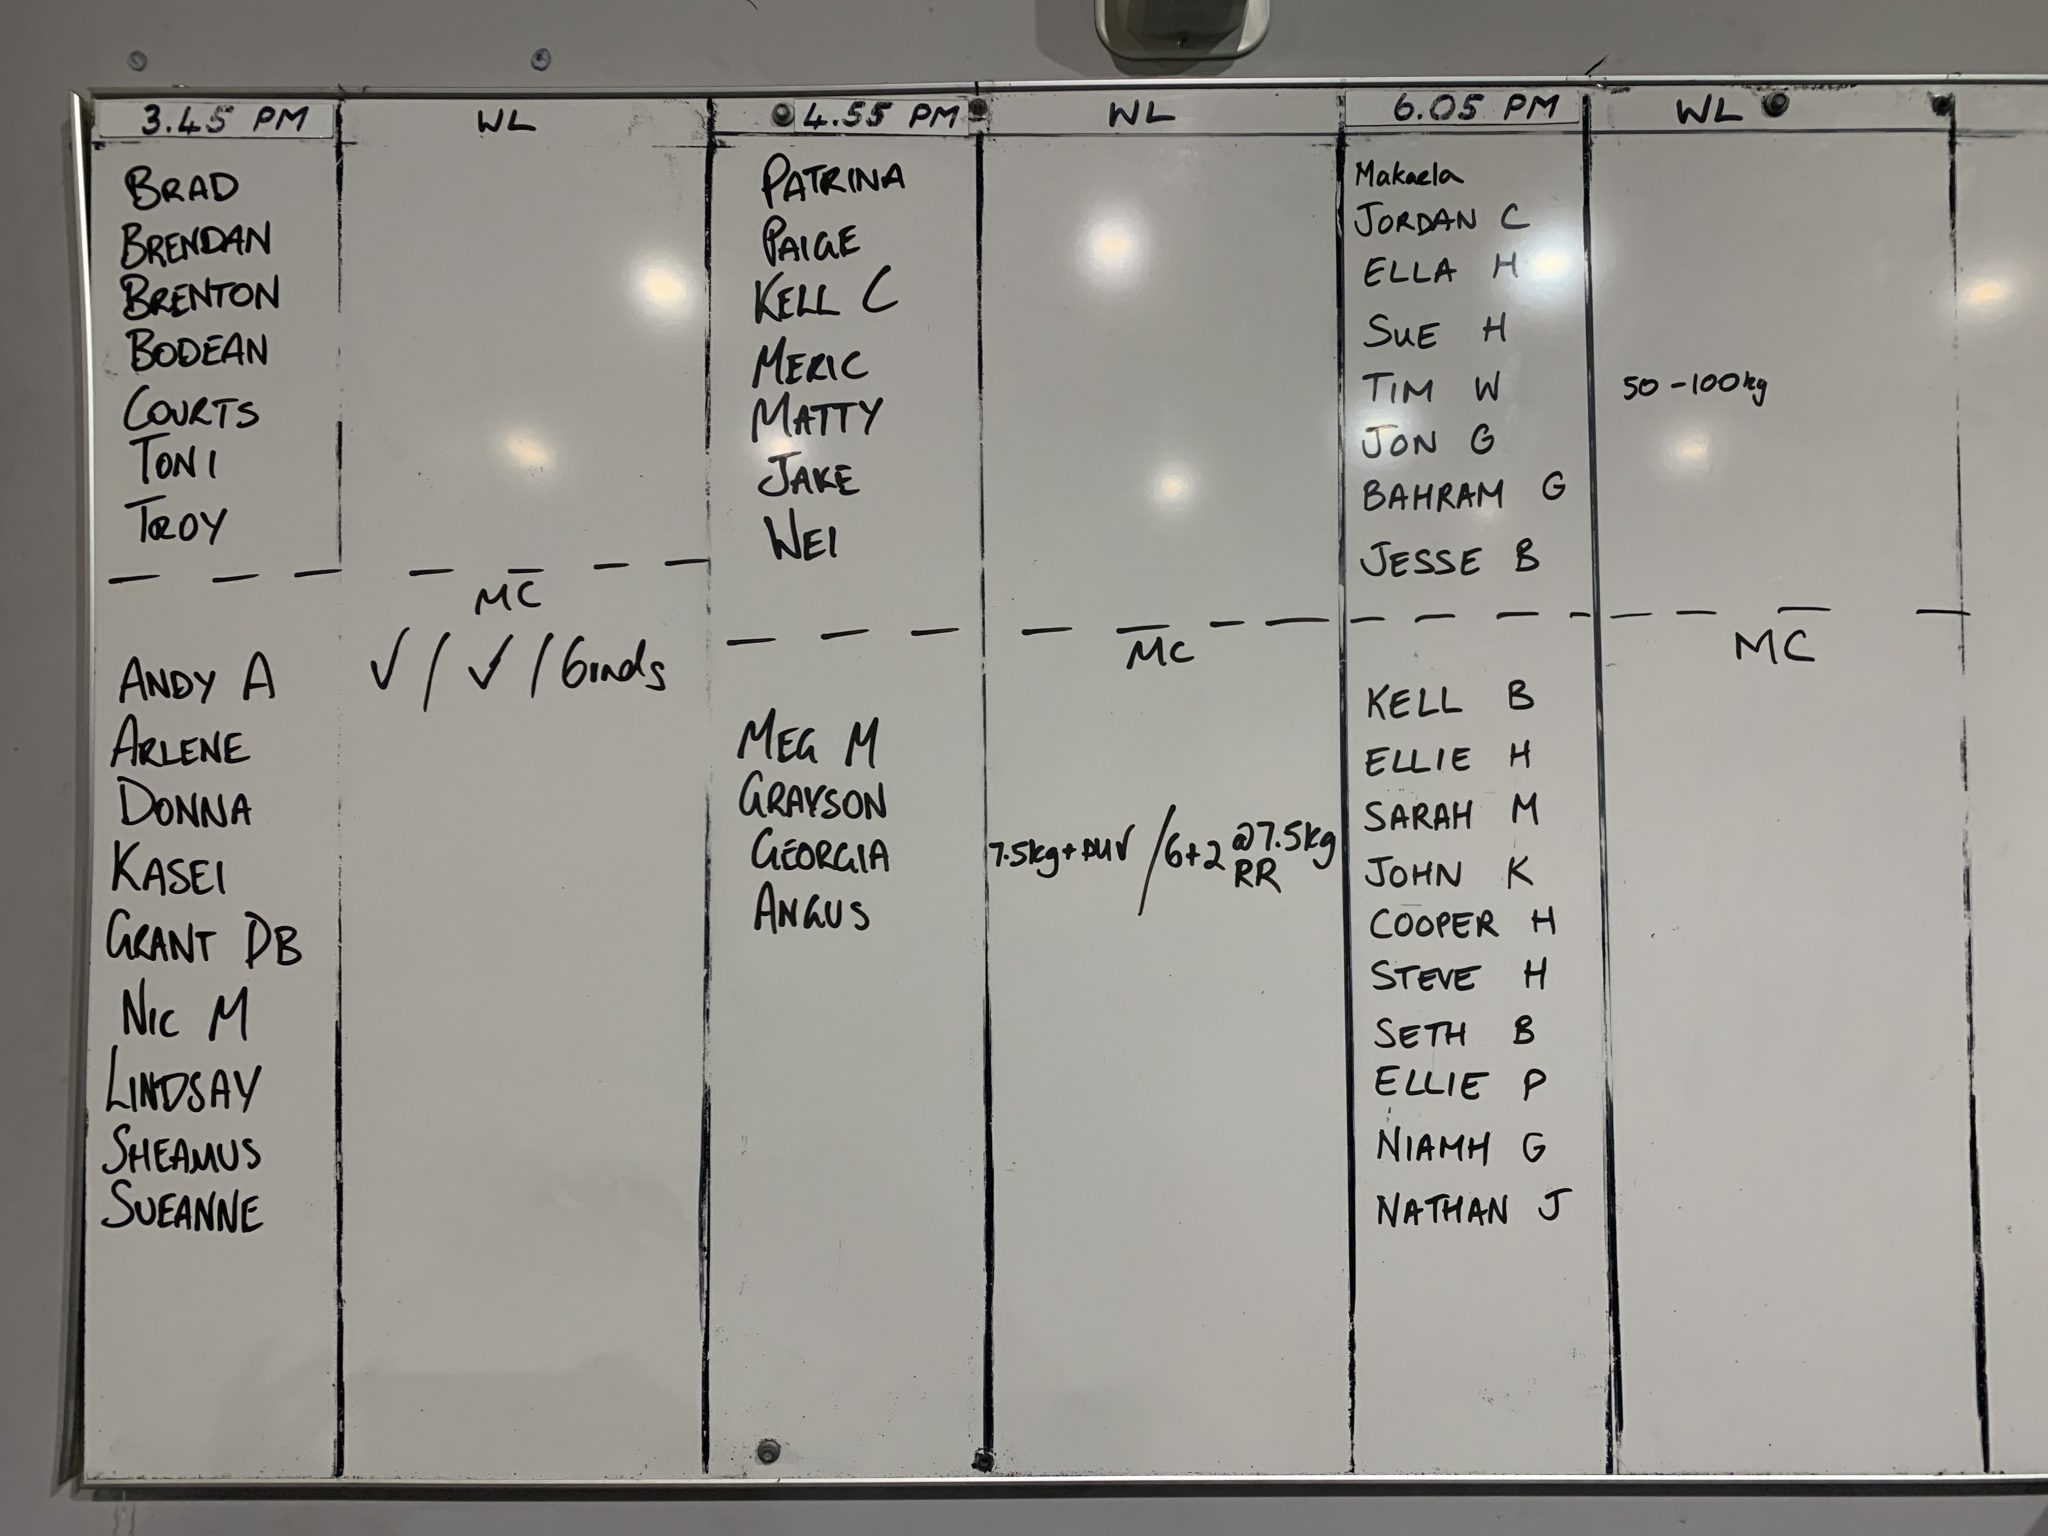 3.45 PM
WL
BRAD
BRENDAN
BRENTON
BODEAN
COURTS
TONI
TROY
MC
ANDY A ✓ / ✓ / 6rnds
ARLENE
DONNA
KASEI
GRANT DB
NIC M
LINDSAY
SHEAMUS
SUEANNE
4.55 PM
WL
PATRINA
PAIGE
KELL C
MERIC
MATTY
JAKE
WEI
MC
MEG M
GRAYSON
GEORGIA 7.5kg + / 6+2 @7.5kg
RR
ANGUS
6.05 PM
WL
Makaela
JORDAN C
ELLA H
SUE H
TIM W 50-100kg
JON G
BAHRAM G
JESSE B
MC
KELL B
ELLIE H
SARAH M
JOHN K
COOPER H
STEVE H
SETH B
ELLIE P
NIAMH G
NATHAN J